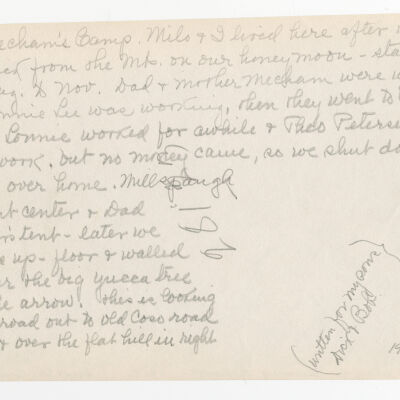 Mecham's Camp. Milo & I lived here after
from the Mts. on our honeymoon - sta
to Nov. Dad & Mother Mecham were
Lee was working, then they went to
Lonnie worked for awhile & Theo Peters
work, but no money came, so we shut do
over home. Millspaugh
center & Dad
tent - later we
up - floor & walled
the big yucca tree
arrow. This is looking
road out to old Coso road
& over the flat hill in right
(written for my sons
Dick & Bob)
19